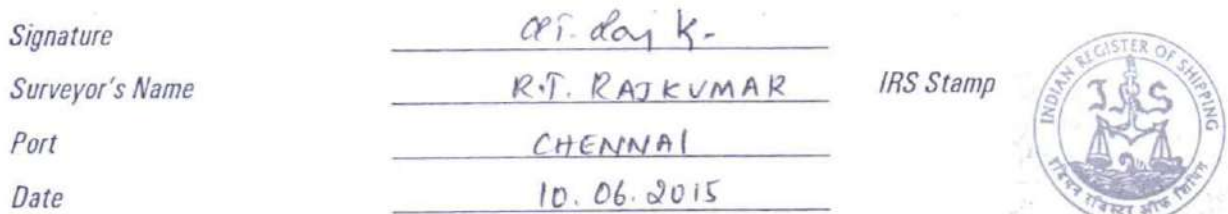 Signature
Surveyor's Name R.T. RAJKUMAR IRS Stamp
Port CHENNAI
Date 10.06.2015
INDIAN REGISTER OF SHIPPING
IRS
इंडियन रजिस्टर ऑफ शिपिंग